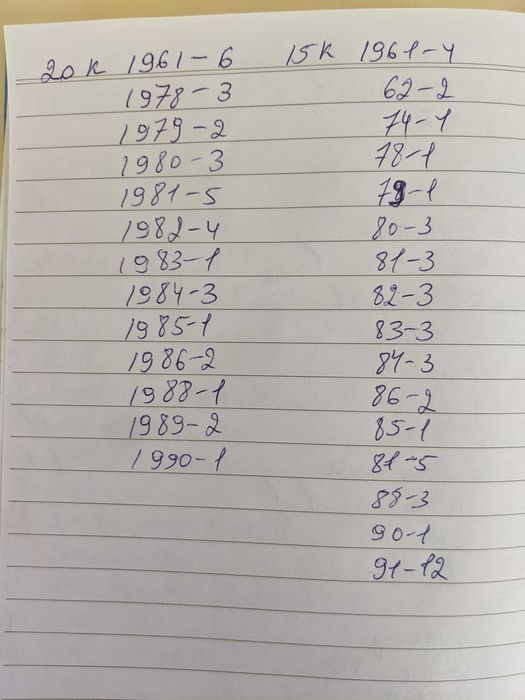 20 к 1961-6 15к 1961-4
1978-3 62-2
1979-2 74-1
1980-3 78-1
1981-5 79-1
1982-4 80-3
1983-1 81-3
1984-3 82-3
1985-1 83-3
1986-2 84-3
1988-1 86-2
1989-2 85-1
1990-1 81-5
88-3
90-1
91-12